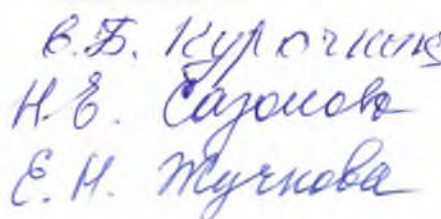 В.Б. Курочкин
Н.Е. Сазонова
Е.Н. Жучкова